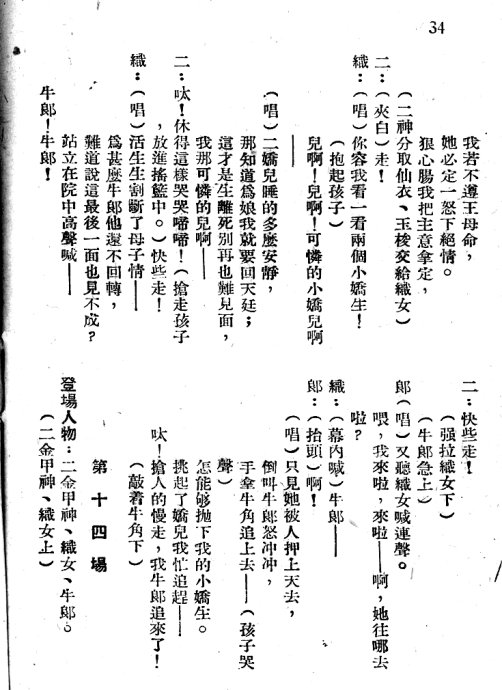 34
我若不遵王母命，
她必定一怒下絕情。
狠心腸我把主意拿定，
（二神分取仙衣、玉梭交給織女）
二：（夾白）走！
織：（唱）你容我看一看兩個小嬌生！
（抱起孩子）
兒啊！兒啊！可憐的小嬌兒啊
——
（唱）二嬌兒睡的多麽安靜，
那知道爲娘我就要回天廷；
這才是生離死別再也難見面，
我那可憐的兒啊——
二：呔！休得這樣哭哭啼啼！（搶走孩子
，放進搖籃中。）快些走！
織：（唱）活生生割斷了母子情——
爲甚麽牛郎他還不回轉，
難道說這最後一面也見不成？
站立在院中高聲喊——
牛郎！牛郎！
二：快些走！
（强拉織女下）
（牛郎急上）
郎（唱）又聽織女喊連聲。
喂，我來啦，來啦——啊，她往哪去
啦？
織：（幕內喊）牛郎——
郎：（抬頭）啊！
（唱）只見她被人押上天去，
倒叫牛郎怒冲冲，
手拿牛角追上去——（孩子哭
聲）
怎能够拋下我的小嬌生。
挑起了嬌兒我忙追趕——
呔！搶人的慢走，我牛郎追來了！
（敲着牛角下）
第十四場
登場人物：二金甲神、織女、牛郎。
（二金甲神、織女上）